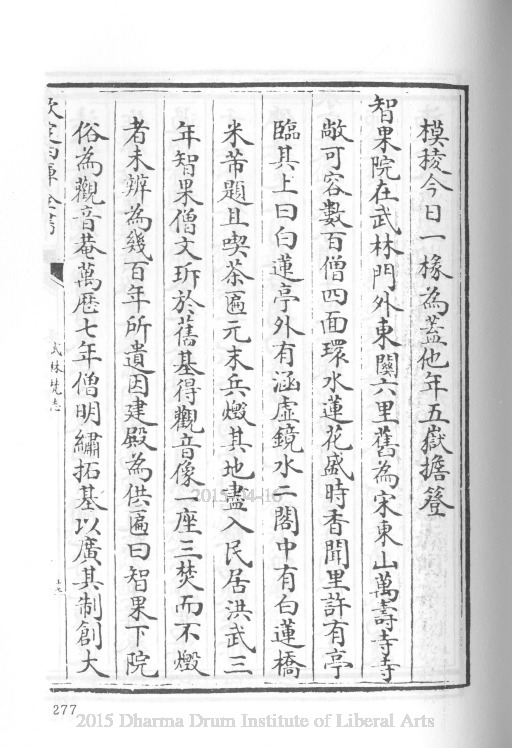 模稜今日一椽為蓋他年五嶽擔簦
智果院在武林門外東闗六里舊為宋東山萬壽寺寺
敞可容數百僧四面環水蓮花盛時香聞里許有亭
臨其上曰白蓮亭外有涵虚鏡水二閣中有白蓮橋
米芾題且喫茶匾元末兵燬其地盡入民居洪武三
年智果僧文玡於舊基得觀音像一座三焚而不燬
者未辨為幾百年所遺因建殿為供匾曰智果下院
俗為觀音菴萬歴七年僧明繡拓基以廣其制創大
欽定四庫全書
武林梵志
277
2015-04-16
2015 Dharma Drum Institute of Liberal Arts